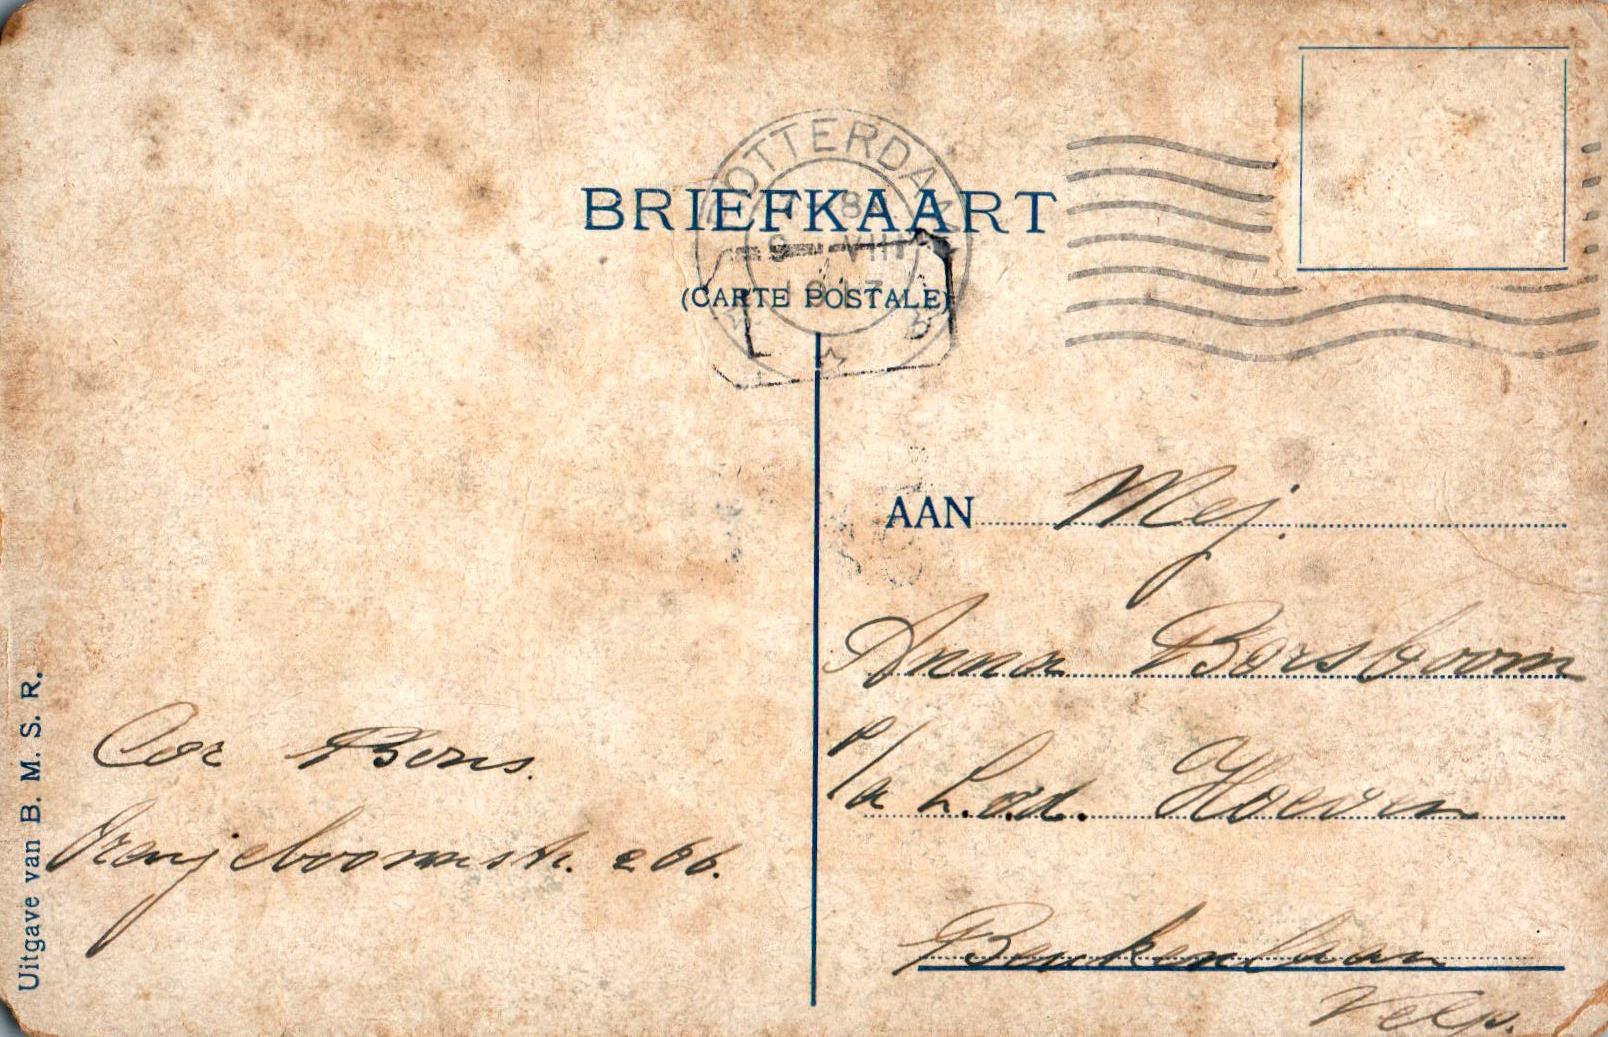 ROTTERDAM
BRIEFKAART
VIII
(CARTE POSTALE)
AAN Mej.
Anna Borsboom
p/a L.v.d. Hoeven
Beukenlaan
Velp.
Cor Bons.
Oranjeboomstr. 266.
Uitgave van B. M. S. R.